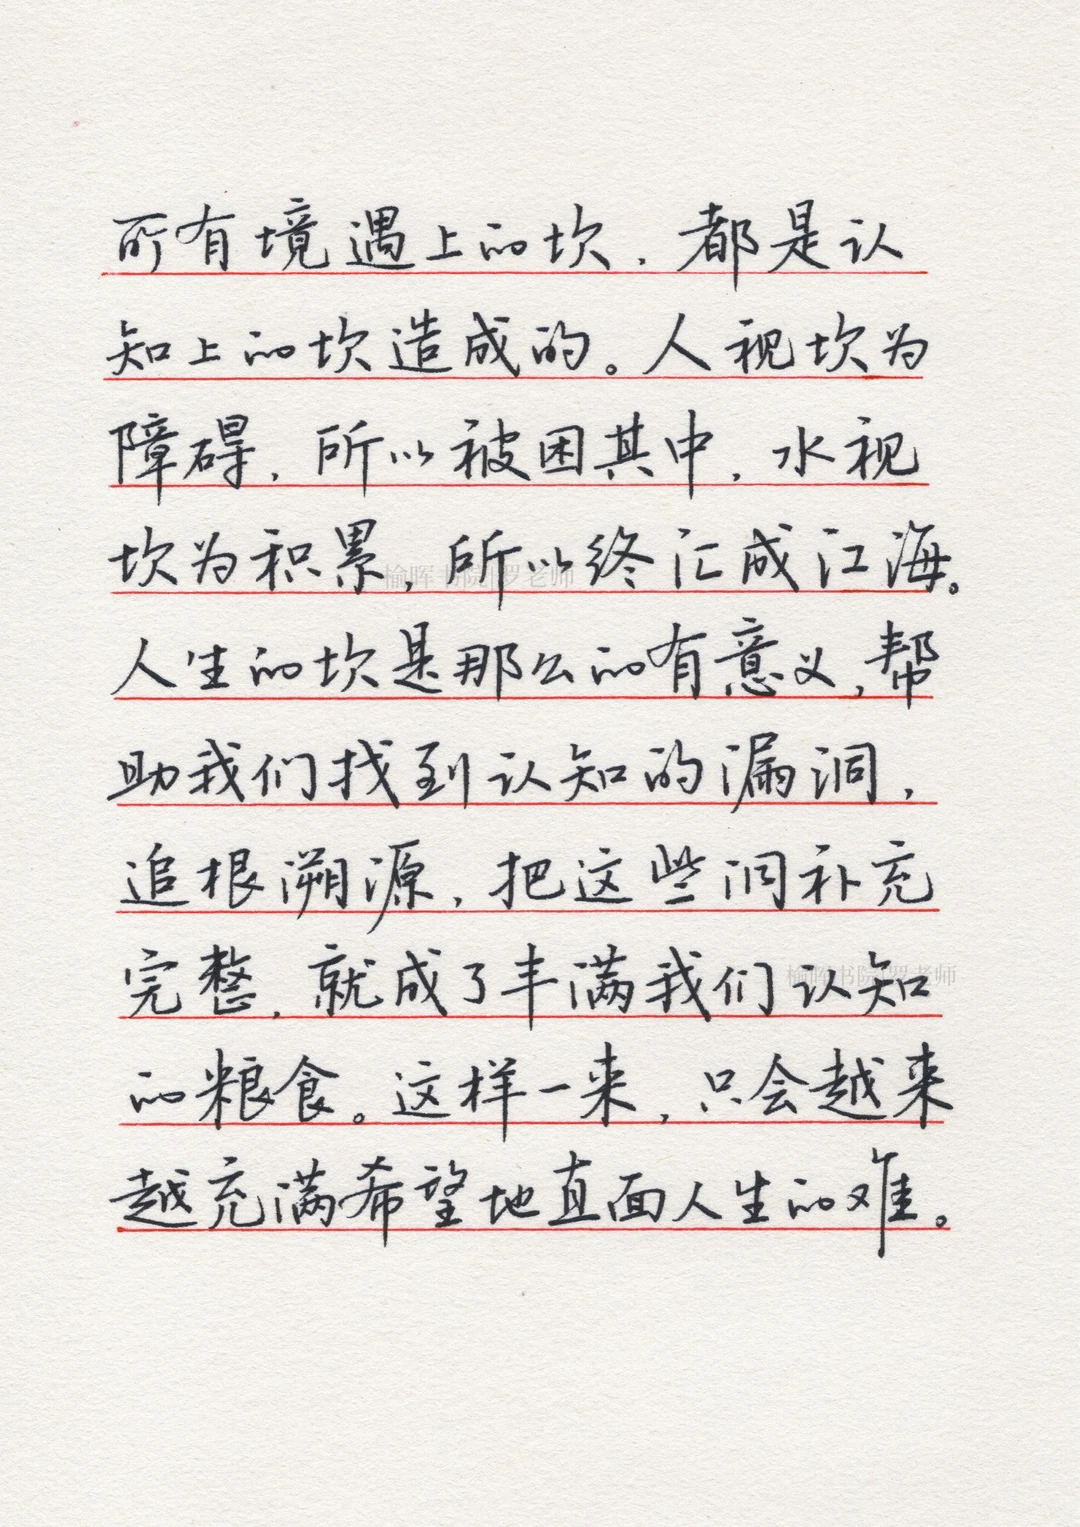 所有境遇上的坎，都是认
知上的坎造成的。人视坎为
障碍，所以被困其中，水视
坎为积累，所以终汇成江海。
榆晖书院|罗老师
人生的坎是那么的有意义，帮
助我们找到认知的漏洞，
追根溯源，把这些洞补充
完整，就成了丰满我们认知
榆晖书院|罗老师
的粮食。这样一来，只会越来
越充满希望地直面人生的难。